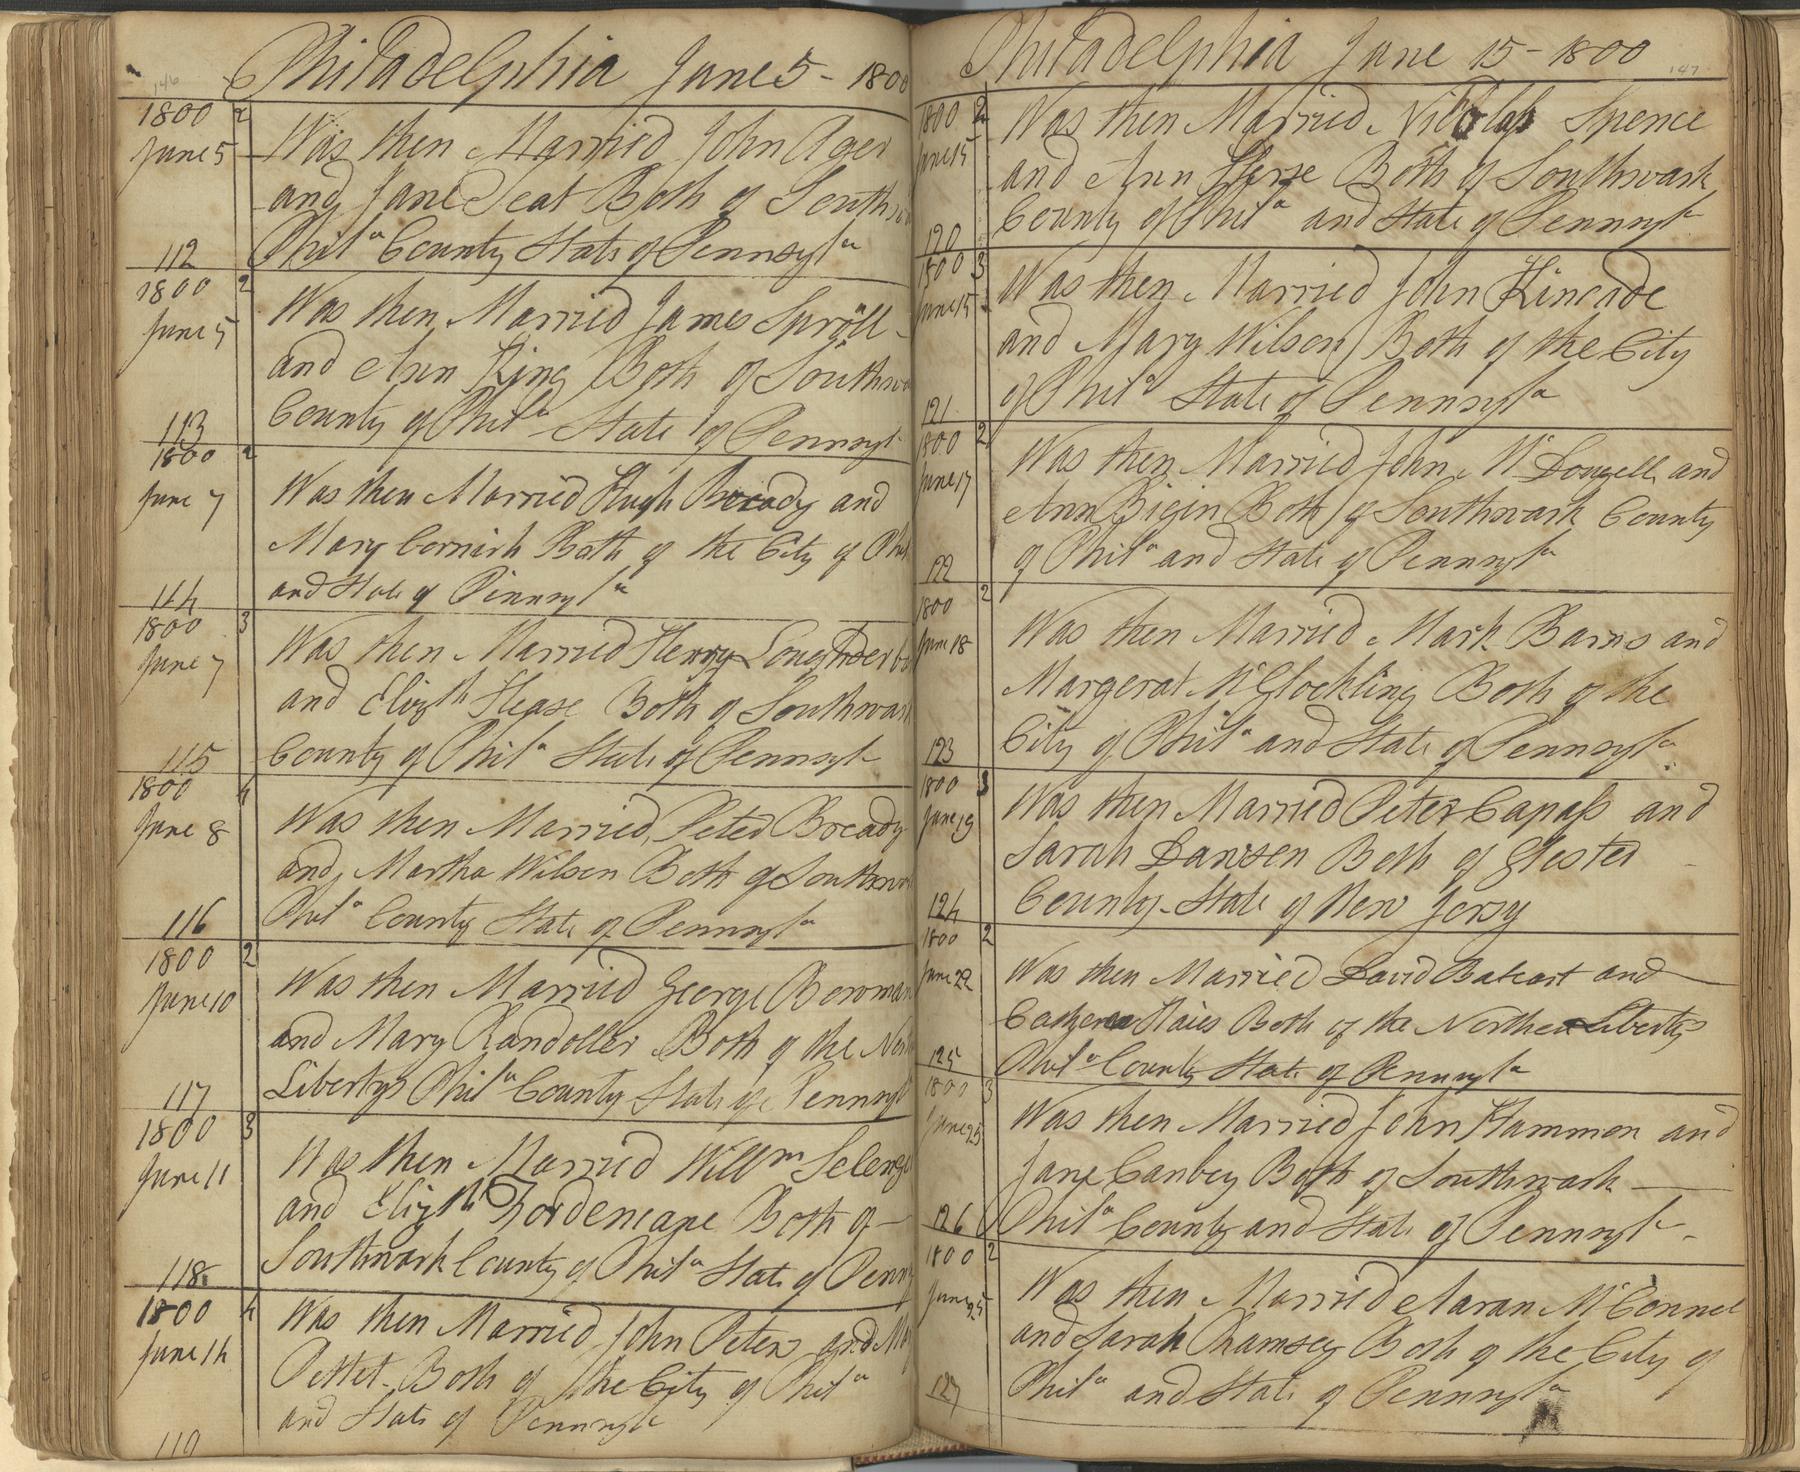 146
Philadelphia June 5 - 1800
1800 2
June 5
Was then Married John Ager
and Jane Seat Both of Southw
112
Phila County State of Pennsyla
1800 2
June 5
Was then Married James Sproll
and Ann King Both of Southwa
113
County of Phila State of Pennsyl
1800 2
June 7
Was then Married Hugh Bready and
Mary Cornish Both of the City of Phil
114
and State of Pinnsyla
1800 3
June 7
Was then Married Henry
and Elizth Hease Both of Southwark
115
County of Phila State of Pennsyl
1800 4
June 8
Was then Married Peter Bready
and Martha Wilson Both of Southwa
116
Phila County State of Pennsyla
1800 2
June 10
Was then Married George Bowman
and Mary Randoller Both of the Nor
117
Libertys Phila County State of Pennsyla
1800 3
June 11
Was then Married Willm Selenge
and Elizth Both of
118
Southwark County of Phila State of Penny
1800 4
June 14
Was then Married John Peters and Ma
Pettet Both of the City of Phila
and State of Pennsyla
119
147
Philadelphia June 15 - 1800
1800 2
June 15
Was then Married Spence
and Ann Both of Southwark
120
County of Phila and State of Pennsyl
1800 3
June 15
Was then Married John Kincade
and Mary Wilson Both of the City
121
of Phila State of Pennsyla
1800 2
June 17
Was then Married John Mc Dowell and
Ann Bigin Both of Southwark County
122
of Phila and State of Pennsyla
1800 2
June 18
Was then Married Mark Barns and
Margerat McGlockling Both of the
123
City of Phila and State of Pennsyla
1800 3
June 19
Was then Married Peter Capass and
Sarah Dawsen Both of Glester
124
County State of New Jersy
1800 2
June 22
Was then Married David Batcast and
Haies Both of the Northen Libertys
125
Phila County State of Pennsyla
1800 3
June 25
Was then Married John Hammon and
Jane Canbey Both of Southwark
126
Phila County and State of Pennsyl
1800 2
June 25
Was then Married Aaran McConnel
and Sarah Rhamsey Both of the City of
127
Phila and State of Pennsyla